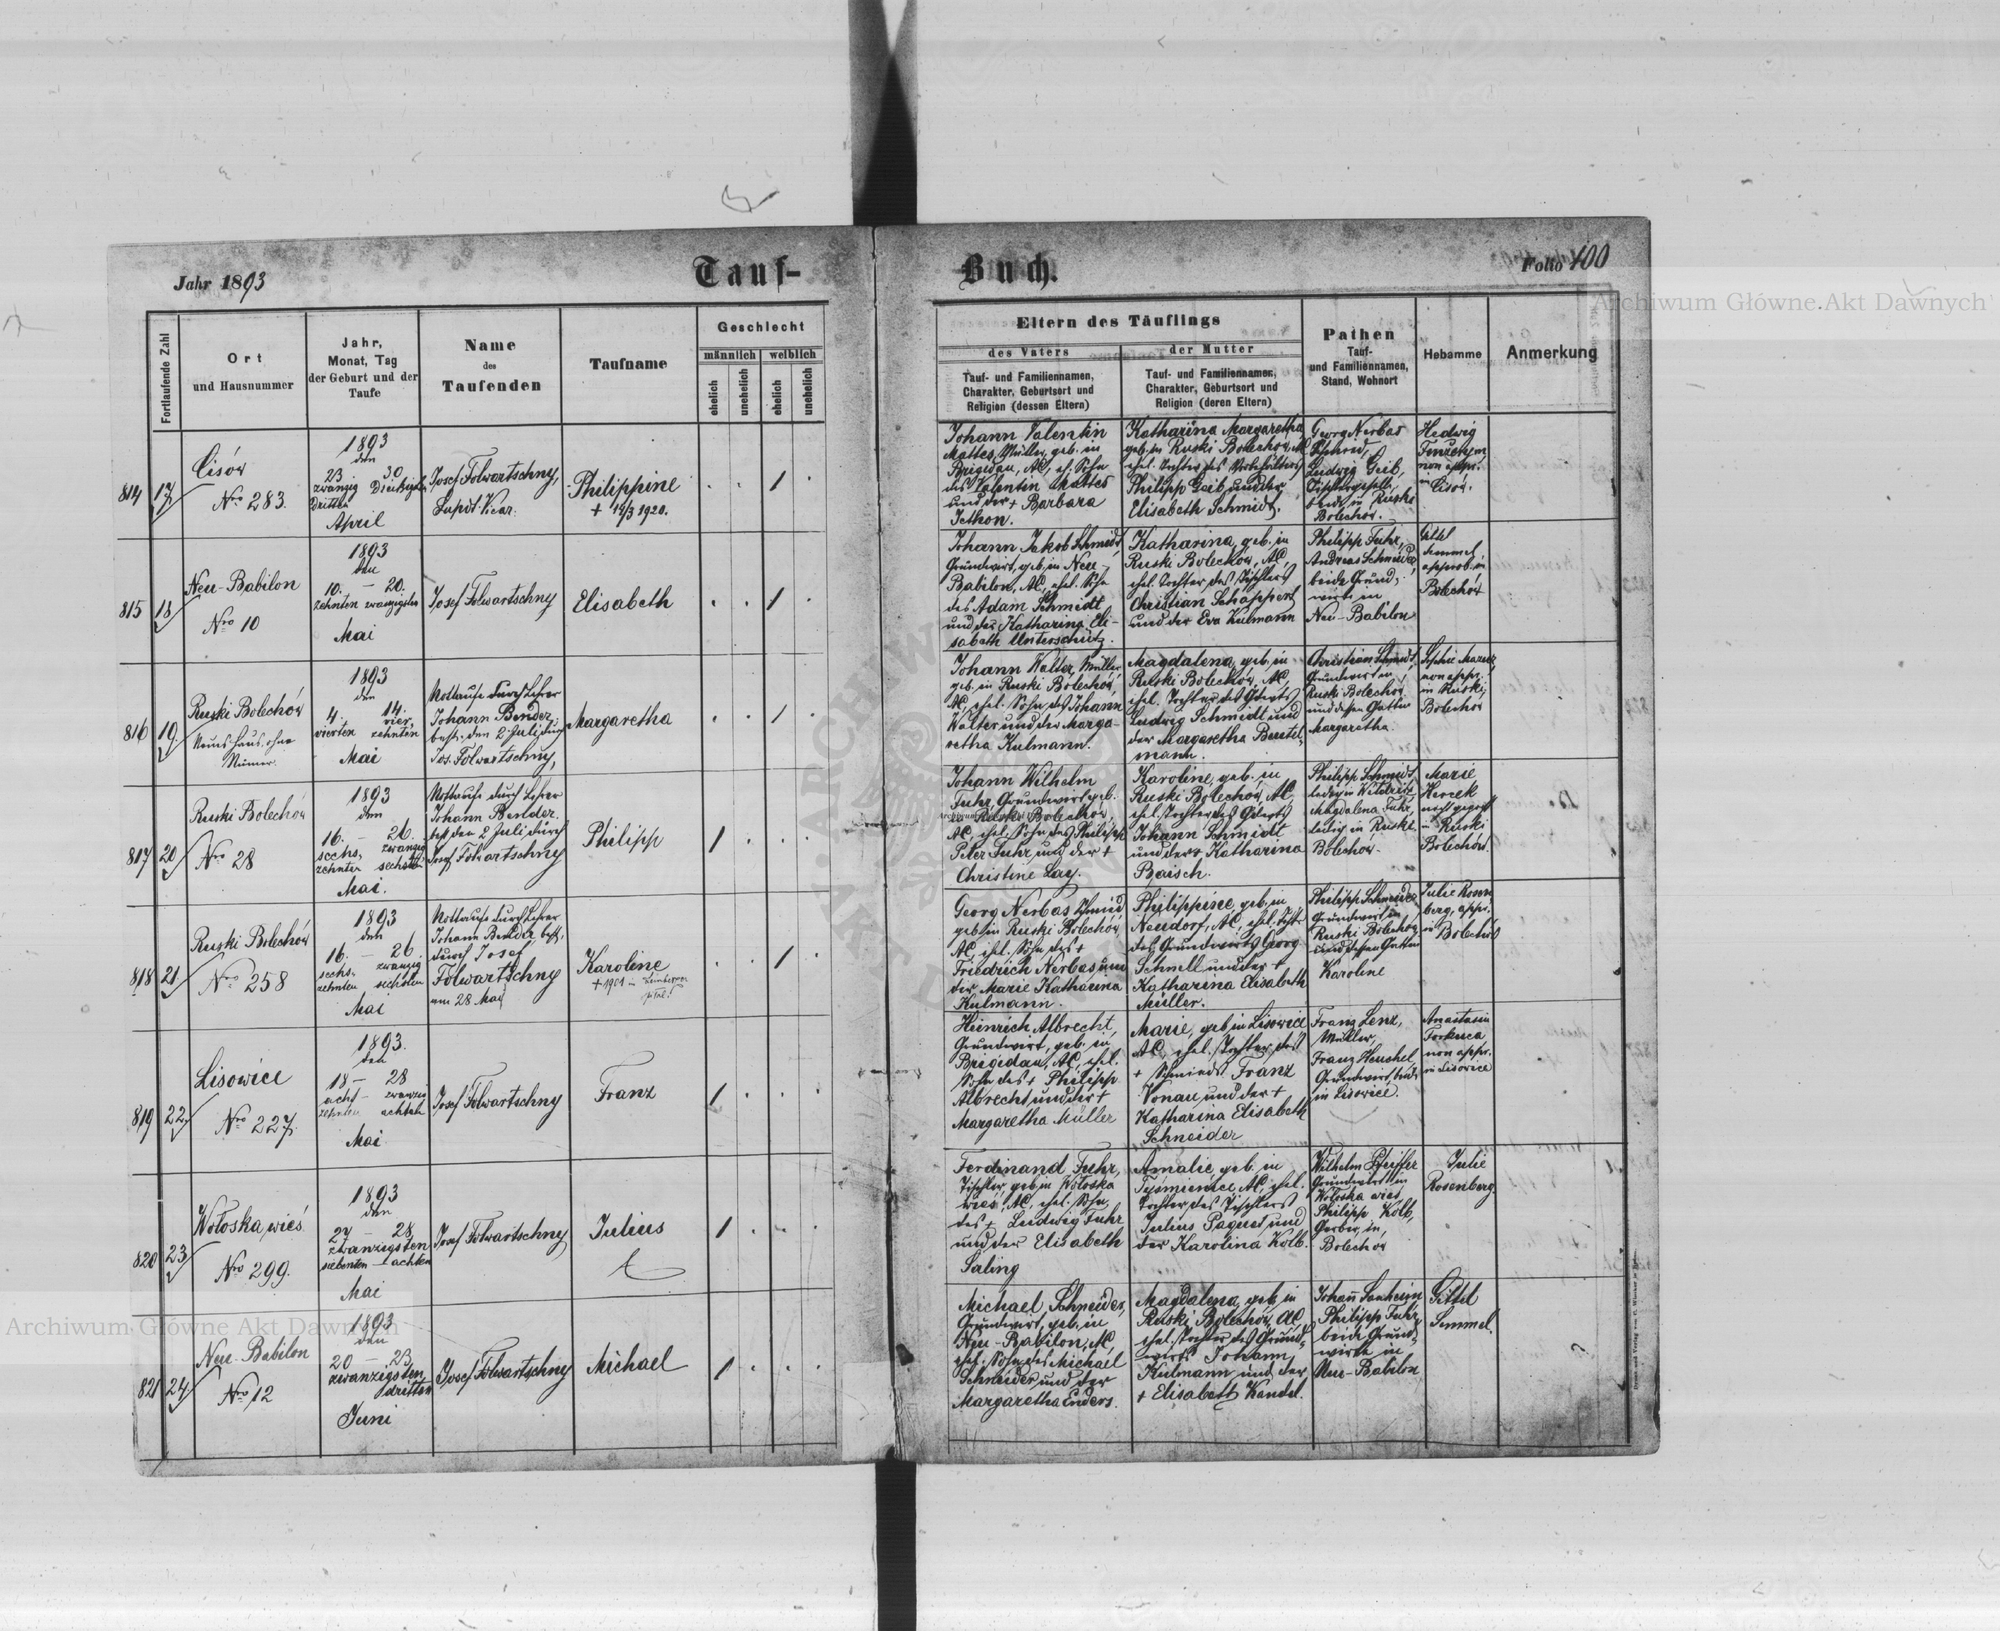 Jahr 1893
Tauf-
Buch.
Folio 100
Archiwum Główne Akt Dawnych
Fortlaufende Zahl
Ort
und Hausnummer
Jahr,
Monat, Tag
der Geburt und der
Taufe
Name
des
Taufenden
Taufname
Geschlecht
männlich weiblich
ehelich unehelich ehelich unehelich
Eltern des Täuflings
des Vaters
der Mutter
Tauf- und Familiennamen,
Charakter, Geburtsort und
Religion (dessen Eltern)
Tauf- und Familiennamen,
Charakter, Geburtsort und
Religion (deren Eltern)
Pathen
Tauf-
und Familiennamen,
Stand, Wohnort
Hebamme
Anmerkung
814 17
Lisów
Nro 283.
1893
den
23 30
zwanzig Dreißigsten
dritten
April
Josef Folwartschny,
Supdt. Vicar.
Philippine
+ 19/3 1920.
Johann Valentin
Mattes, Müller, geb. in
Brigidau, AC, eh. Sohn
des Valentin Mattes
und der + Barbara
Jethon.
Katharina Margaretha
geb. in Ruski Bolechów, AC
ehel. Tochter des
Philipp Geib und der
Elisabeth Schmidt.
Georg Nerbas
Schmid,
Ludwig Geib,
beide in Ruski
Bolechów.
Hedwig
non appr.
in
Lisów.
815 18
Neu-Babilon
Nro 10
1893
den
10. - 20.
zehnten zwanzigsten
Mai
Josef Folwartschny
Elisabeth
Johann Jakob Schmidt,
Grundwirt, geb. in Neu-
Babilon, AC, ehel. Sohn
des Adam Schmidt
und der Katharina Eli-
sabeth Unterschütz.
Katharina, geb. in
Ruski Bolechów, AC,
ehel. Tochter des Tischlers
Christian Schappert
und der Eva Kulmann
Philipp Fuhr,
Andreas Schneider,
beide Grund-
wirte in
Neu-Babilon
Gittel
Semmel
approb. in
Bolechów
816 19
Ruski Bolechów
Neues Haus, ohne
Numer.
1893
den
4. 14.
vierten vier-
zehnten
Mai
Nottaufe durch Lehrer
Johann Bender,
best. den 2 Juli durch
Jos. Folwartschny,
Margaretha
Johann Walter, Müller
geb. in Ruski Bolechów,
AC, ehel. Sohn des Johann
Walter und der Marga-
retha Kulmann.
Magdalena, geb. in
Ruski Bolechów, AC,
ehel. Tochter des
Ludwig Schmidt und
der Margaretha
mann.
Christian Schmidt,
Grundwirt in
Ruski Bolechów
und dessen Gattin
Margaretha.
Sophie
non appr.
in Ruski
Bolechów
817 20
Ruski Bolechów
Nro 28
1893
den
16. - 26.
sechs- zwanzig
zehnten sechsten
Mai.
Nottaufe durch Lehrer
Johann Bender.
best. den 2 Juli durch
Josef Folwartschny
Philipp
Johann Wilhelm
Fuhr, Grundwirt, geb.
in Ruski Bolechów,
AC, ehel. Sohn des Philipp
Peter Fuhr und der +
Christine Lay.
Karoline, geb. in
Ruski Bolechów, AC,
ehel. Tochter des
Johann Schmidt
und der + Katharina
Baisch.
Philipp Schmidt,
ledig in
Magdalena Fuhr,
ledig in Ruski
Bolechów.
Marie
Hercek
nicht geprüft
in Ruski
Bolechów.
818 21
Ruski Bolechów
Nro 258
1893
den
16. - 26.
sechs- zwanzig
zehnten sechsten
Mai
Nottaufe durch Lehrer
Johann Bender, best.
durch Josef
Folwartschny
am 28 Mai
Karoline
+ 1901 in
Georg Nerbas, Schmied
geb. in Ruski Bolechów
AC, ehel. Sohn des +
Friedrich Nerbas und
der Marie Katharina
Kulmann.
Philippine, geb. in
Neudorf, AC, ehel. Tocht.
des Grundwirts Georg
Schnell und der +
Katharina Elisabeth
Müller.
Philipp Schneider
Grundwirt in
Ruski Bolechów
und dessen Gattin
Karoline
Julie Rosen-
berg, appr.
in Bolechów
819 22
Lisowice
Nro 227.
1893.
den
18 - 28
acht- zwanzig
zehnten achten
Mai
Josef Folwartschny
Franz
Heinrich Albrecht,
Grundwirt, geb. in
Brigidau, AC, ehel.
Sohn des + Philipp
Albrecht und der +
Margaretha Müller
Marie, geb. in Lisowice
AC, ehel. Tochter des
+ Schmieds Franz
Vonau und der +
Katharina Elisabeth
Schneider
Franz Lenz,
Müller,
Franz Heuchel
Grundwirt, beide
in Lisowice.
Anastasia
non appr.
in Lisowice
820 23
Wołoska wieś
Nro 299.
1893
den
27 - 28
zwanzigsten
siebenten - achten
Mai
Josef Folwartschny
Julius
Ferdinand Fuhr,
Tischler, geb. in Wołoska
wieś, AC, ehel. Sohn
des + Ludwig Fuhr
und der Elisabeth
Saling
Amalie, geb. in
Tyśmienice, AC, ehel.
Tochter des Tischlers
Julius Paquet und
der Karolina Kolb.
Wilhelm Pfeiffer
Grundwirt in
Wołoska wieś,
Philipp Kolb,
Gerber, in
Bolechów
Julie
Rosenberg.
821 24
Neu-Babilon
Nro 12
1893
den
20 - 23
zwanzigsten,
dritten
Juni
Josef Folwartschny
Michael
Michael Schneider,
Grundwirt, geb. in
Neu-Babilon, AC,
ehel. Sohn des Michael
Schneider und der
Margaretha Enders.
Magdalena, geb. in
Ruski Bolechów, AC,
ehel. Tochter des Grund-
wirts Johann
Kulmann und der
+ Elisabeth Kandel.
Johann Sauheim
Philipp Fuhr,
beide Grund-
wirte in
Neu-Babilon
Gittel
Semmel.
Archiwum Główne Akt Dawnych